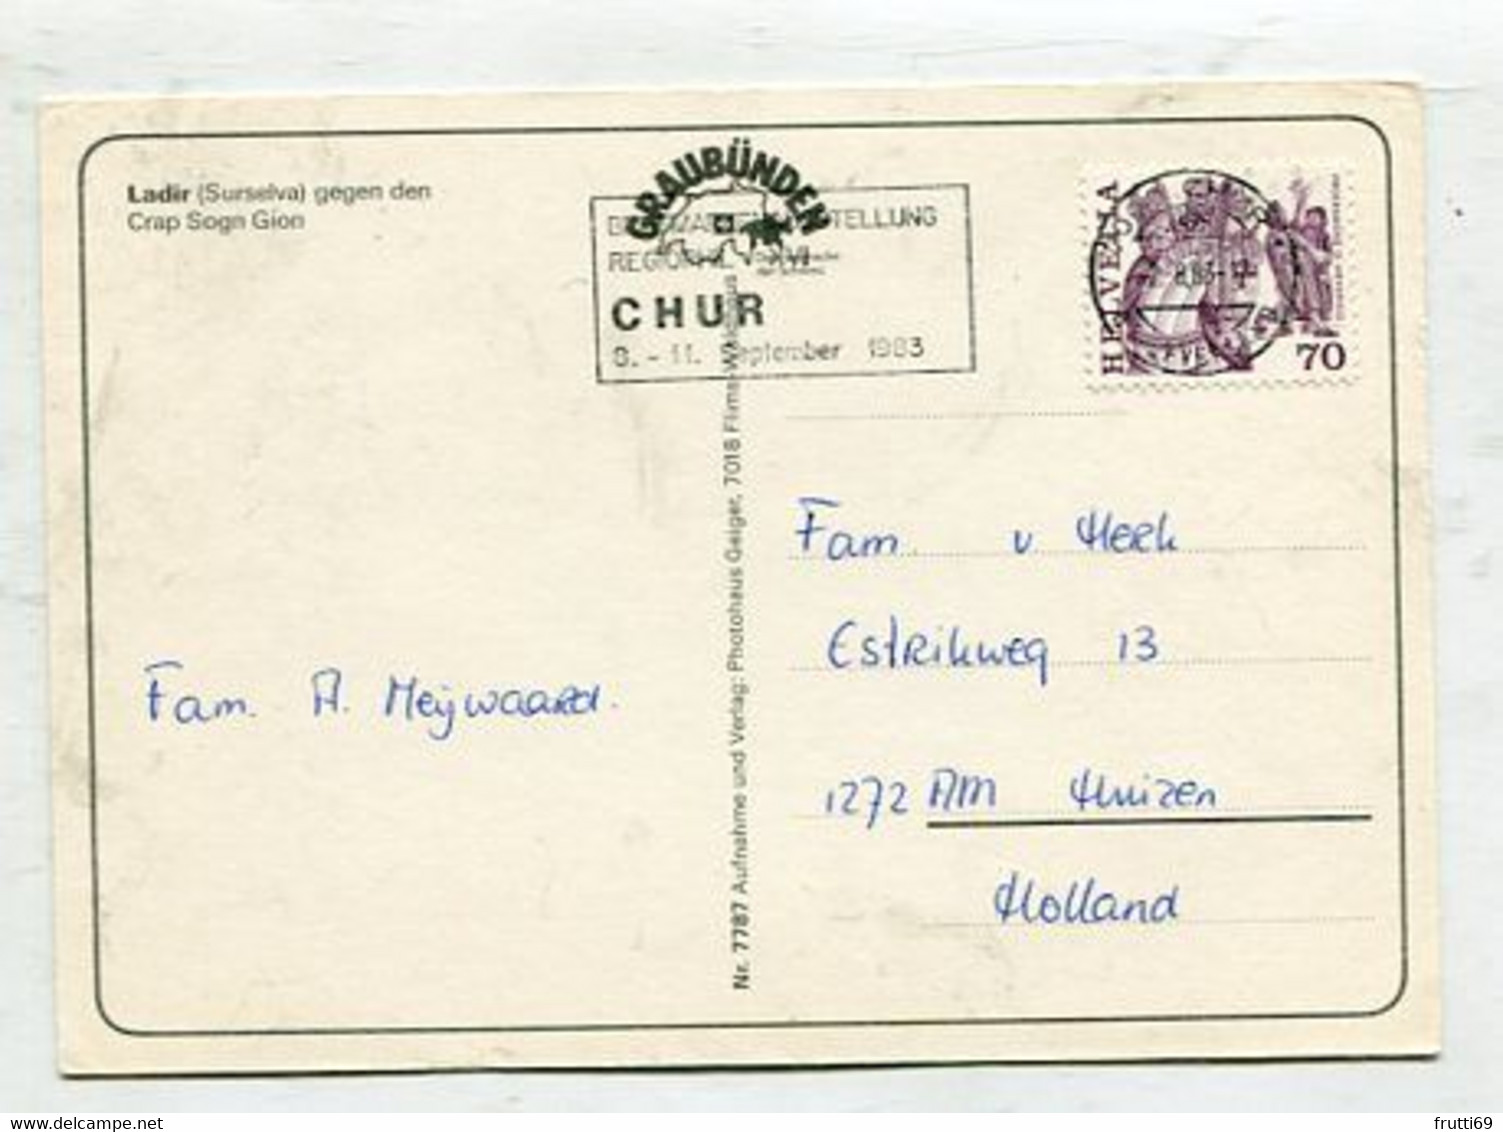 Ladir (Surselva) gegen den
Crap Sogn Gion
GRAUBÜNDEN
BRIEFMARKENAUSSTELLUNG
REGIONAL XVI
CHUR
8. - 11. September 1983
HELVETIA
70
Nr. 7787 Aufnahme und Verlag: Photohaus Geiger, 7018 Flims-Waldhaus
Fam. v Herk
Estrikweg 13
1272 AM Huizen
Holland
Fam. A. Meijwaard.
delcampe.net
frutti69